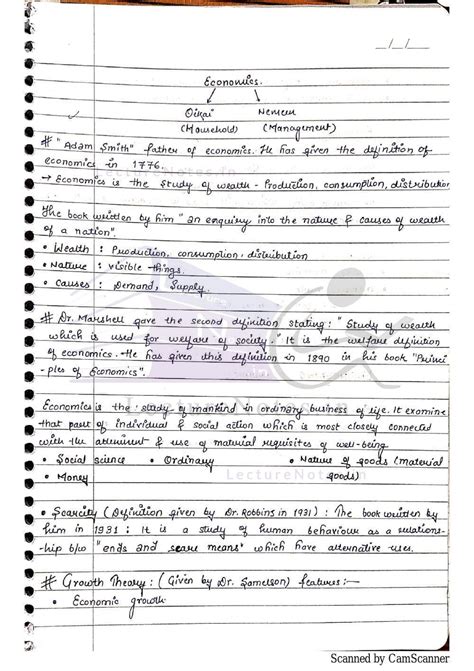 __/__/__
Economics.
Oikai Nemein
(Household) (Management)
# "Adam Smith" father of economics. He has given the definition of
economics in 1776.
→ Economics is the study of wealth - Production, consumption, distribution
The book written by him "an enquiry into the nature & causes of wealth
of a nation".
• Wealth : Production, consumption, distribution
• Nature : visible things.
• Causes : Demand, Supply.
# Dr. Marshell gave the second definition stating : "Study of wealth
which is used for welfare of society". It is the welfare definition
of economics. He has given this definition in 1890 in his book "Princi
-ples of Economics".
Economics is the study of mankind in ordinary business of life. It examine
that part of individual & social action which is most closely connected
with the attainment & use of material requisites of well-being
• Social science • Ordinary • Nature of goods (material
• Money goods)
LectureNotes.in
• Scarcity (Definition given by Dr. Robbins in 1931) : The book written by
him in 1931 : It is a study of human behaviour as a relations-
-hip b/w "ends and scare means" which have alternative uses.
# Growth Theory : (Given by Dr. Samelson) features :-
• Economic growth
Scanned by CamScanner